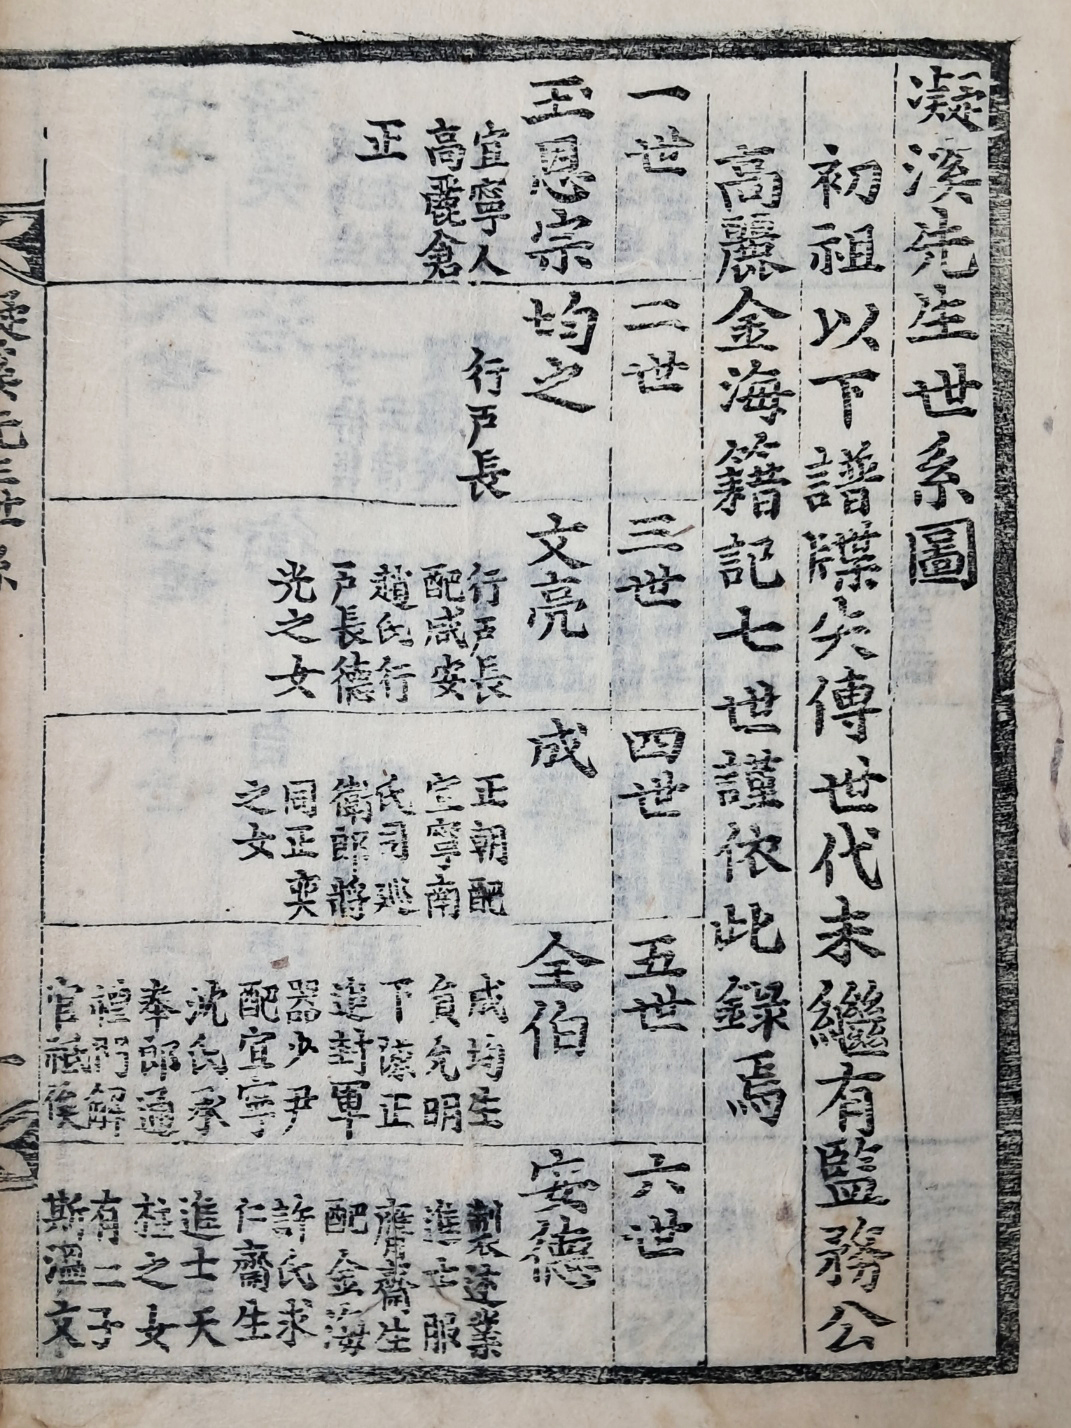 凝溪先生世系圖
初祖以下譜牒失傳世代未繼有監務公
高麗金海籍記七世謹依此錄焉
一世
玉恩宗
宜寧人
高麗倉
正
二世
均之
行戶長
三世
文亮
行戶長
配咸安
趙氏行
戶長德
光之女
四世
成
正朝配
宜寧南
氏司巡
衛郎將
同正奕
之女
五世
全伯
成均生
員允明
下蔭正
追封軍
器少尹
配宜寧
沈氏承
奉郎通
禮門解
官祗侯
六世
安德
製述業
進士服
膺齋生
配金海
許氏求
仁齋生
進士天
柱之女
有二子
斯溫文